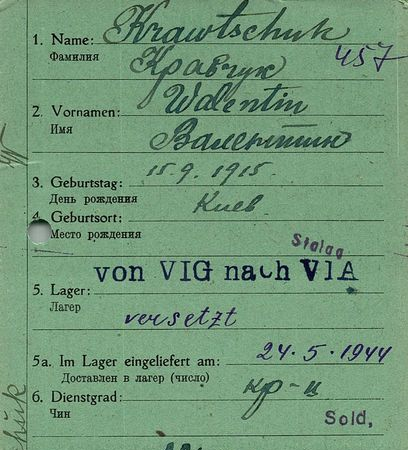 Krawtschuk
1. Name:
Фамилия
457
Кравчук
Walentin
2. Vornamen:
Имя
Валентин
15.9.1915.
3. Geburtstag:
День рождения
Киев
4. Geburtsort:
Место рождения
Stalag
von VIG nach VIA
5. Lager:
Лагер
versetzt
5a. Im Lager eingeliefert am: 24.5.1944
Доставлен в лагер (число)
6. Dienstgrad: кр-ц
Чин
Sold,